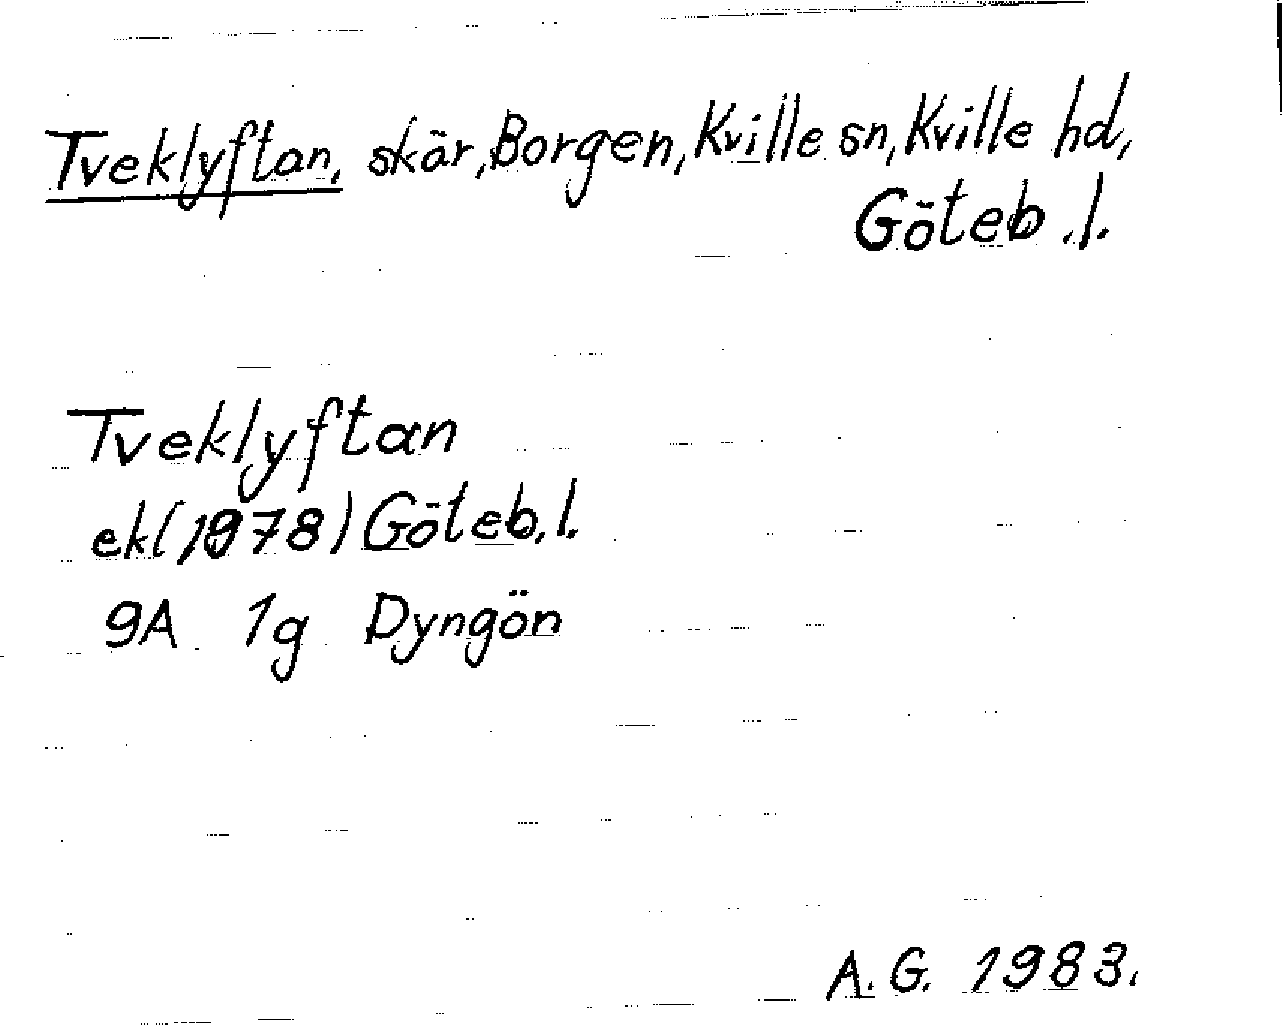 Tveklyftan, skär, Borgen, Kville sn, Kville hd,
Göteb. l.
Tveklyftan
ekl(1978) Göteb. l.
9A 1g Dyngön
A.G. 1983.